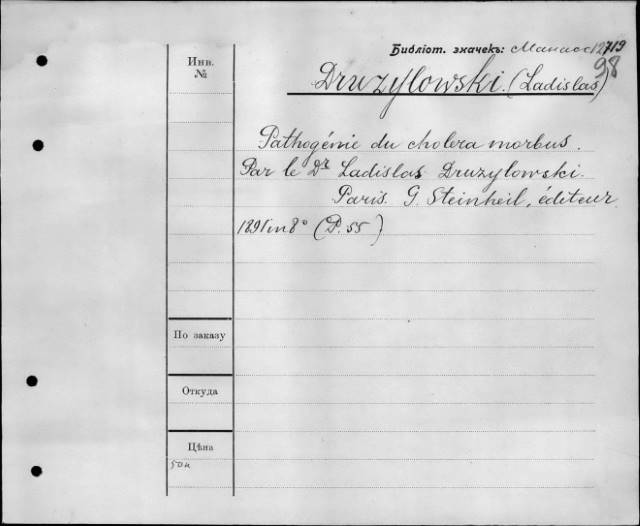 Библіот. значекъ: Манасс 12719
98
Инв.
№
Druzylowski. (Ladislas)
Pathogénie du cholera morbus.
Par le Dr Ladislas Druzylowski.
Paris. G. Steinheil, éditeur.
1891 in 8° (P. 55)
По заказу
Откуда
Цѣна
50к